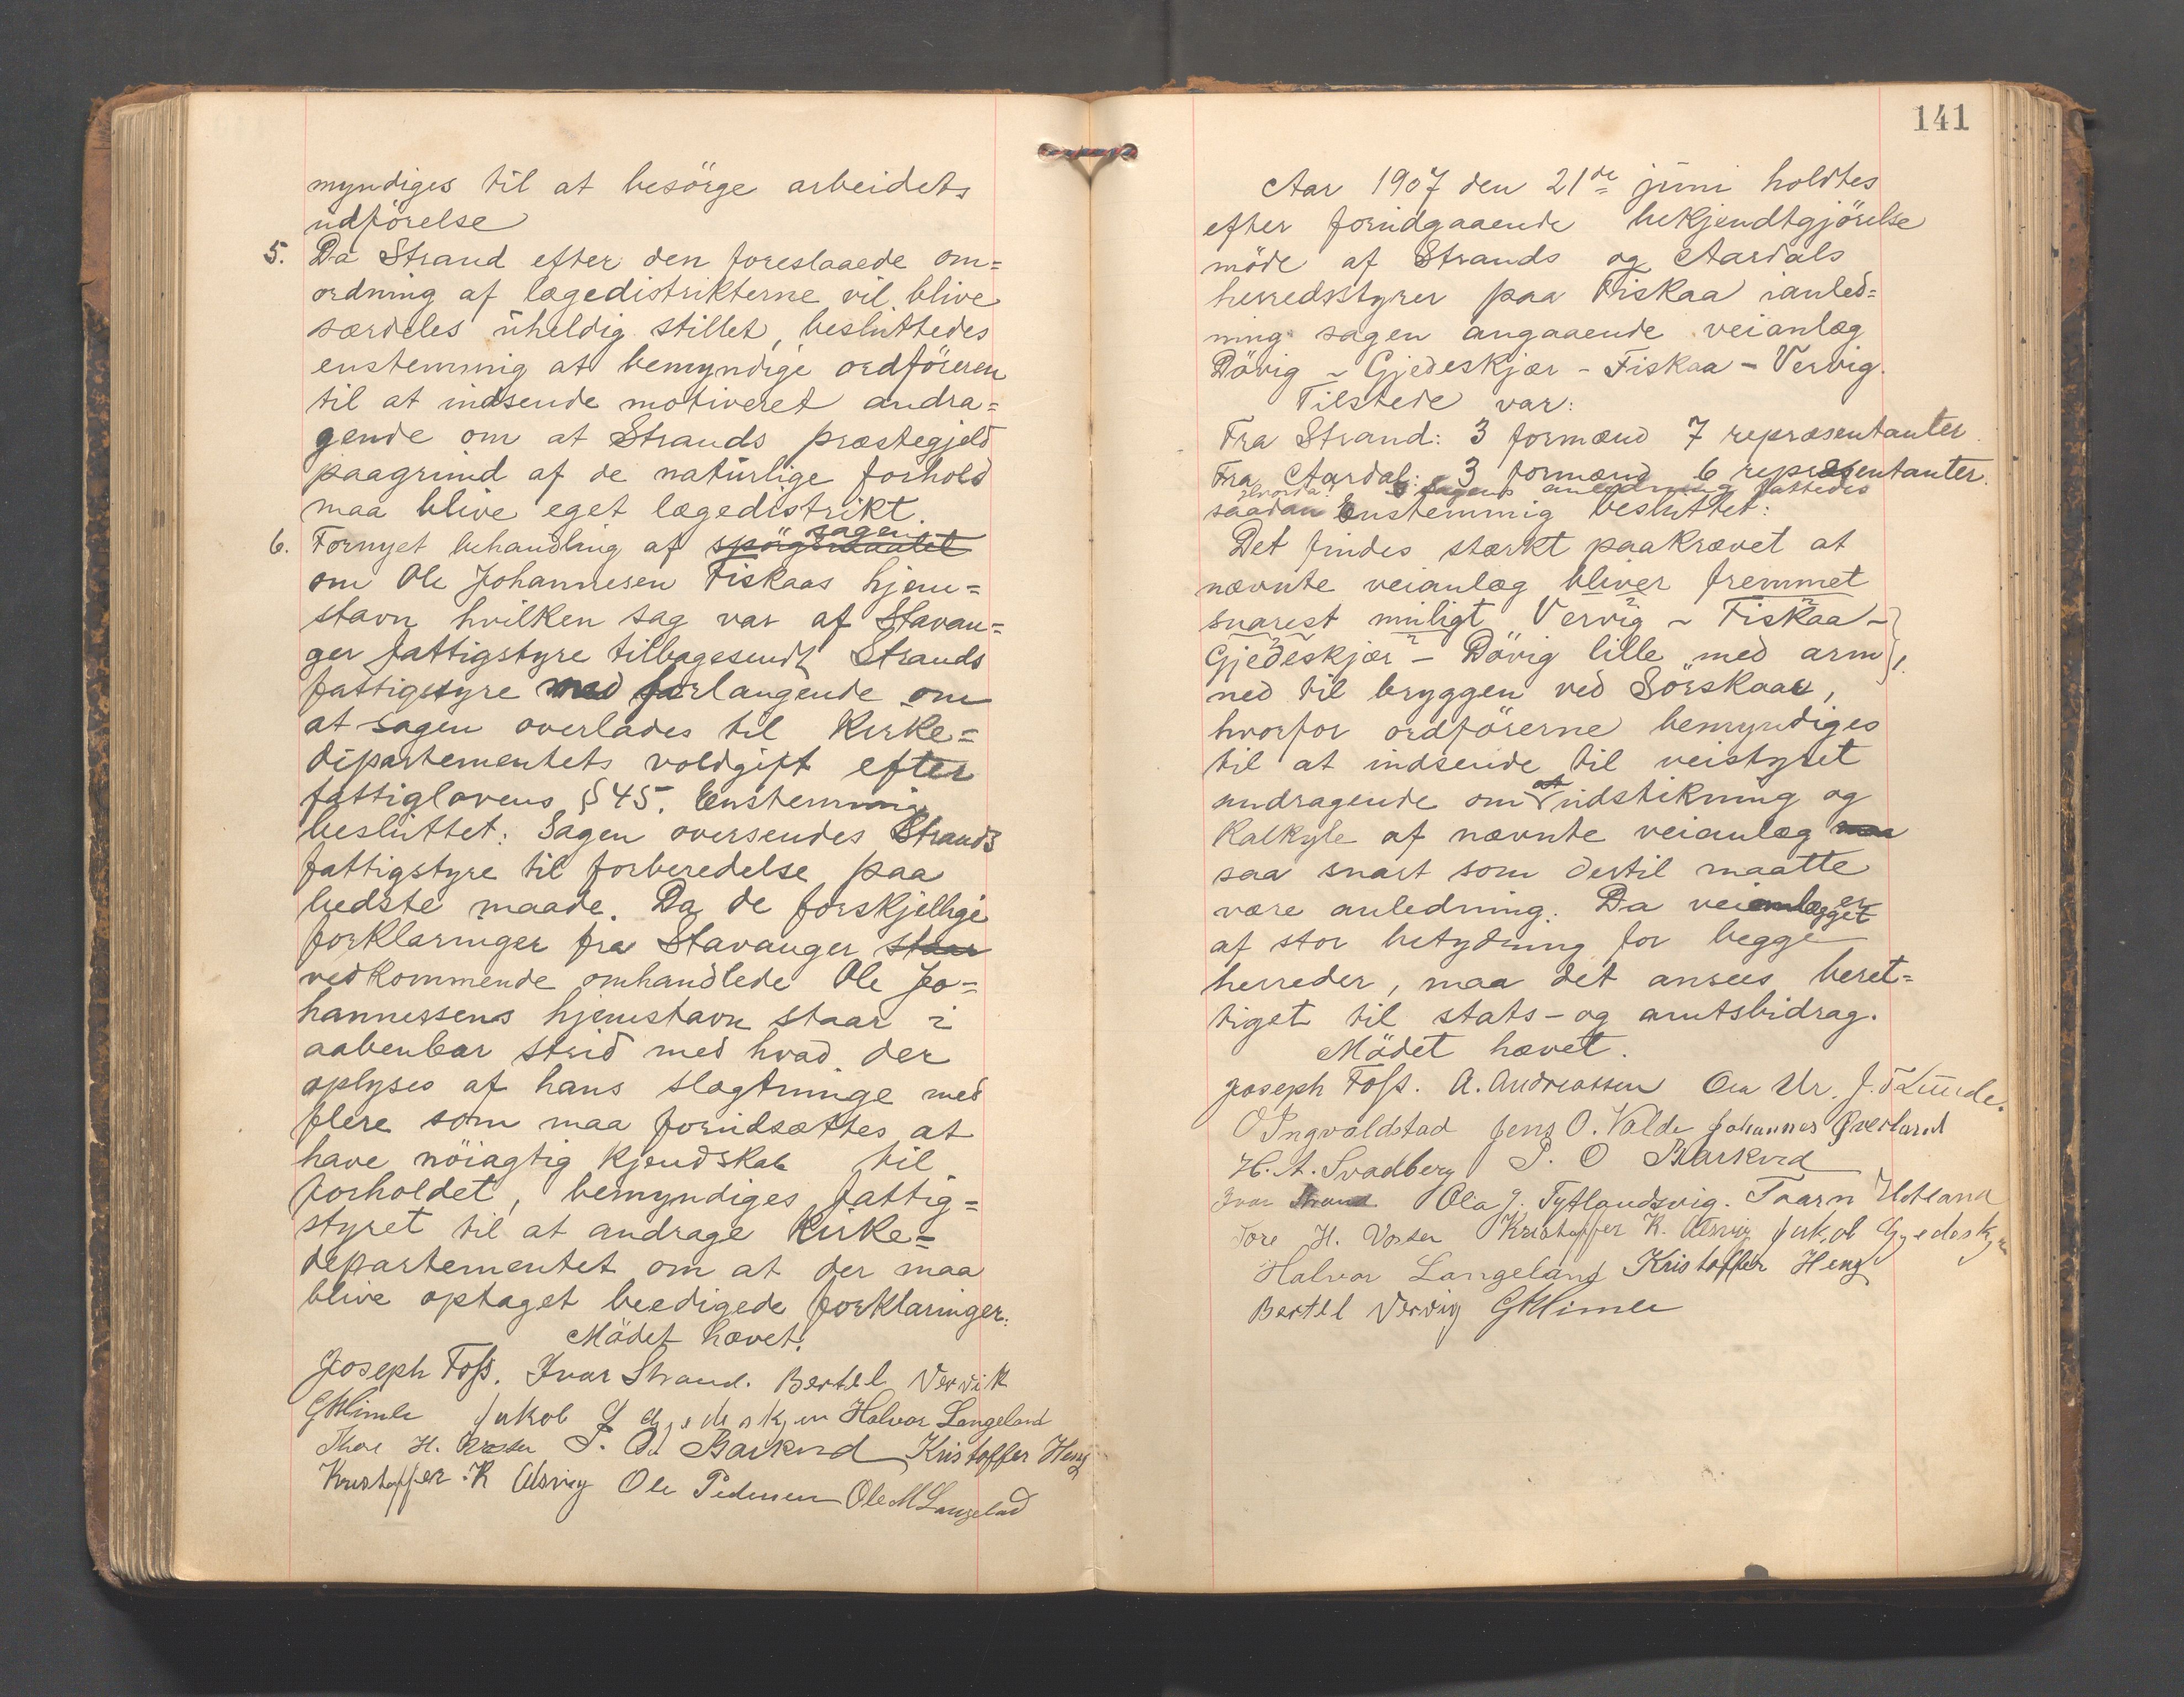 myndiges til at besörge arbeidets
udförelse
5. Da Strand efter den foreslaaede om=
ordning af lægedistrikterne vil blive
særdeles uheldig stillet, besluttedes
enstemmig at bemyndige ordföreren
til at indsende motiveret andra=
gende om at Strands præstegjeld
paagrund af de naturlige forhold
maa blive eget lægedistrikt.
sagen
6. Fornyet behandling af spörgsmaalet
om Ole Johannesen Fiskaas hjem=
stavn hvilken sag var af Stavan=
ger fattigstyre tilbagesendt Strands
fattigstyre med forlangende om
at sagen overlades til Kirke=
departementets voldgift efter
fattiglovens § 45. Enstemmig
besluttet: Sagen oversendes Strands
fattigstyre til forberedelse paa
bedste maade. Da de forskjellige
forklaringer fra Stavanger staar
vedkommende omhandlede Ole Jo=
hannessens hjemstavn staar i
aabenbar strid med hvad der
oplyses af hans slægtninge med
flere som maa forudsættes at
have nöiagtig Kjendskab til
forholdet, bemyndiges fattig=
styret til at andrage Kirke=
departementet om at der maa
blive optaget beedigede forklaringer.
Mödet hævet.
Joseph Foss. Ivar Strand. Bertel Vervik
GHHimle Jakob Gjedeskjer Halvor Langeland
Thore H. P. O. Barkved Kristoffer Heng
Kristoffer K Alsvig Ole Pedersen Ole M Langeland
141
Aar 1907 den 21de juni holdtes
efter forudgaaende bekjendtgjörelse
möde af Strands og Aardals
herredsstyrer paa Fiskaa ianled=
ning sagen angaaende veianlæg
Dövig - Gjedeskjær - Fiskaa - Vervig.
Tilstede var:
Fra Strand: 3 formænd 7 repræsentanter.
Fra Aardal: 3 formænd 6 repræsentanter.
sagens anledning fattedes
saadan Enstemmig besluttet:
Det findes stærkt paakrævet at
nævnte veianlæg bliver fremmet
snarest muligt Vervig - Fiskaa -
Gjedeskjær - Dövig lille med arm
ned til bryggen ved Sörskaar,
hvorfor ordförerne bemyndiges
til at indsende til veistyret
andragende om at udstikning og
Kalkyle af nævnte veianlæg maa
saa snart som dertil maatte
være anledning. Da veianlægget er
af stor betydning for begge
herreder, maa det ansees beret=
tiget til stats- og amtsbidrag.
Mödet hævet.
Joseph Foss. A. Andreassen Ola Ur. J. T Lunde.
O Ingvaldstad Jens O. Valde Johannes Överland
H. A. Svadberg P. O Barkved
Ivar Strand Ola J. Tytlandsvig. Taarn Hetland
Tore H. Kristoffer K. Alsvig Jakob Gjedeskjer
Halvor Langeland Kristoffer Heng
Bertel Vervig GHHimle